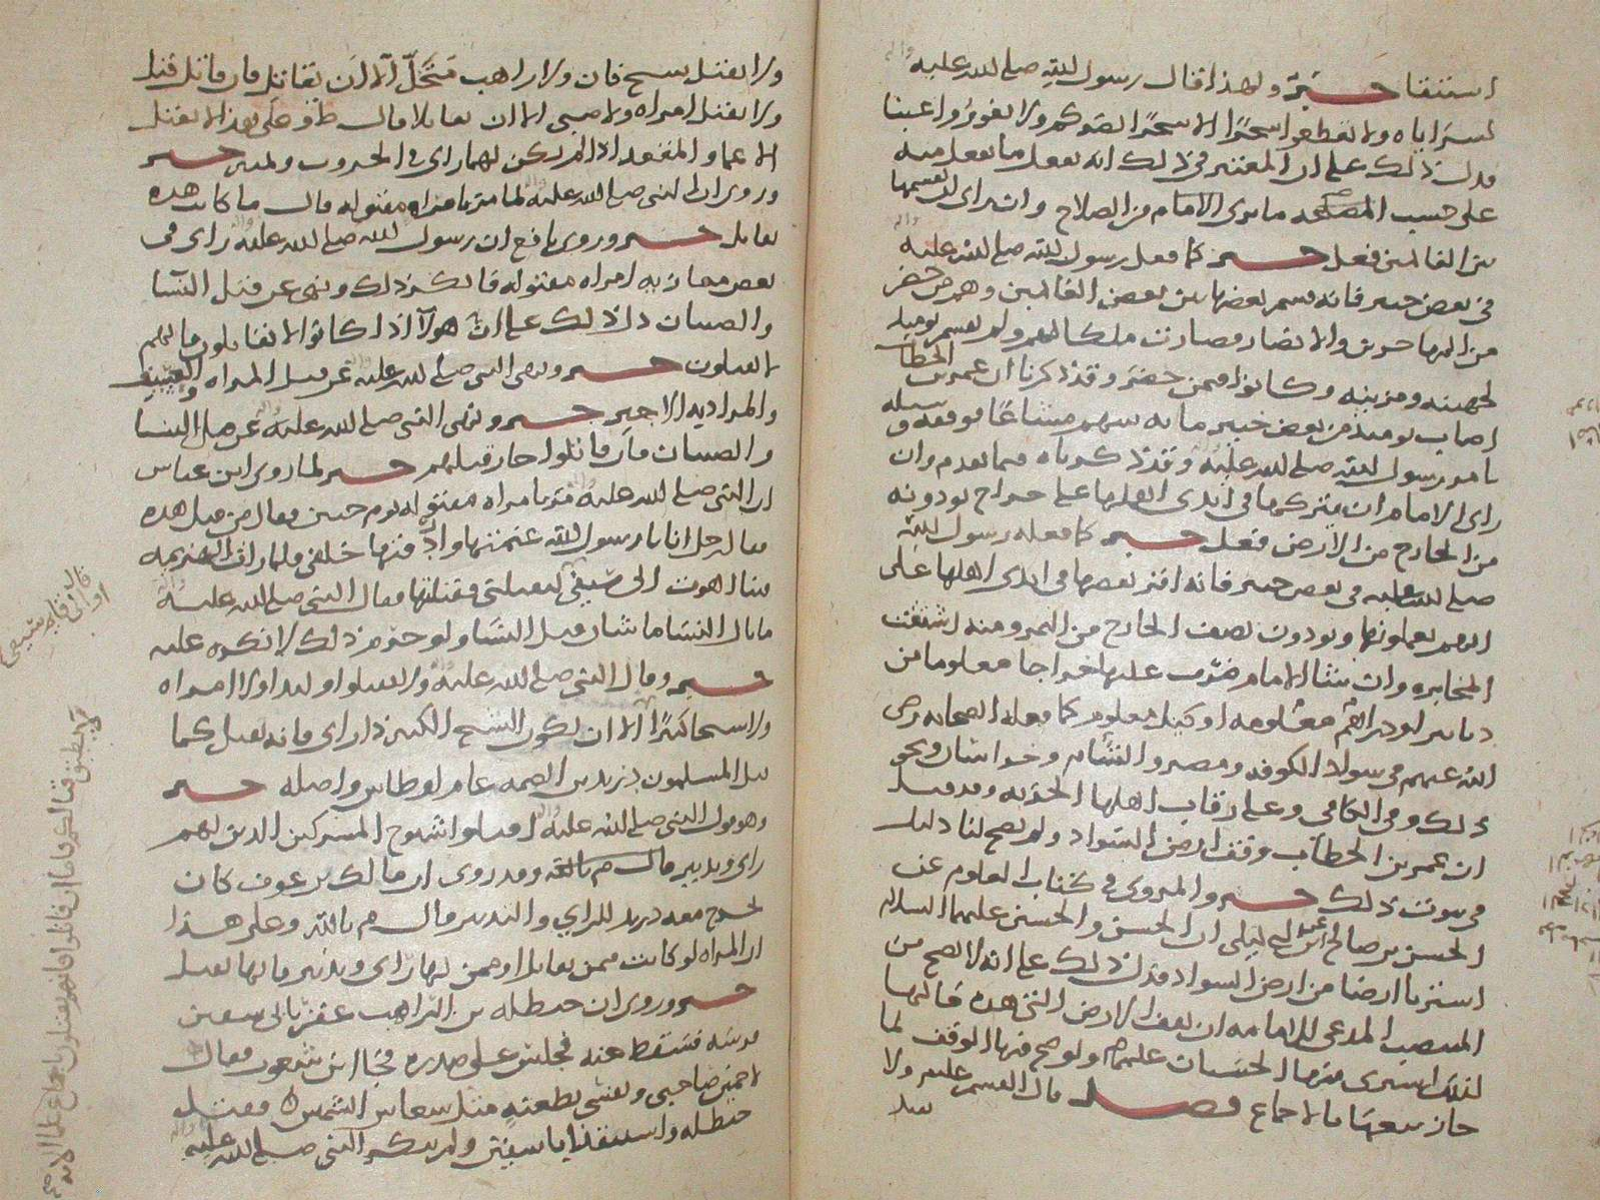 استنقا خبر ولهذا قال رسول الله صلى الله عليه واله
لسراياه ولا تقطعوا شجرًا الا شجرًا يضركم ولا تغوروا عينا
فدل ذلك على ان المعتبر في ذلك انه يفعل ما يفعل منه
على حسب المصلحه ما يرى الامام من الصلاح وان راى ان يقسمها
بين الغانمين فعل خبر كما فعل رسول الله صلى الله عليه واله
في بعض خيبر فانه قسم بعضها بين بعض الغانمين وهم من حضر
من المهاجرين والانصار فصارت ملكا لهم ولم يقسم يوميذ
لجهينه ومزينه وكانوا فيمن حضر وقد ذكرنا ان عمر بن الخطاب
اصاب يوميذ من بعض خيبر مايه سهم مشاعًا فوقفه في سبيله
بامر رسول الله صلى الله عليه وقد ذكرناه فيما تقدم وان
راى الامام ان يتركها في ايدي اهلها على خراج يودونه
من الخارج من الارض فعل خبر كما فعله رسول الله
صلى الله عليه في بعض خيبر فانه اقر بعضها في ايدي اهلها على
انهم يعملونها ويودون نصف الخارج من الثمر ومنه اشتقت
المخابره وان شا الامام ضرب عليها خراجا معلوما من
دنانير او دراهم معلومه او كيل معلوم كما فعله الصحابه رضي
الله عنهم في سواد الكوفه ومصر والشام وخراسان ونحو
ذلك وفي الكافي وعلى رقاب اهلها الجزيه وقد قيل
ان عمر بن الخطاب وقف ارض السواد ولم يصح لنا دليل
في ثبوت ذلك خبر والمروي في كتاب العلوم عن
الحسن بن صالح عن ابن ابي ليلى ان الحسن والحسين عليهما السلام
اشتريا ارضا من ارض السواد فدل ذلك على انه لا يصح من
المنتصب المدعي للامامه ان يقف الارض التي هذه حالها
لذلك اشترى منها الحسنان عليهم ولو صح فيها الوقف لما
جاز بيعها بالاجماع فصل قال القسم عليه ولا
يقتل
ولا يقتل شيخ فان ولا راهب متخل الا ان يقاتل فان قاتل قتل
ولا يقتل امراه ولا صبي الا ان يقاتلا قال ط وعلى هذا لا يقتل
الاعما والمقعد اذا لم يكن لهما راي في الحروب وتدبير خبر
وروي ان النبي صلى الله عليه لما مر بامراه مقتوله قال ما كانت هذه
تقاتل خبر وروى نافع ان رسول الله صلى الله عليه راى في
بعض مغازيه امراه مقتوله فانكر ذلك ونهى عن قتل النسا
والصبيان دل ذلك على ان هولا اذا كانوا لا يقاتلون فانهم
لا يقتلون خبر ونهى النبي صلى الله عليه عن قتل المراه والعسيف
والمراد به الاجير خبر ونهى النبي صلى الله عليه عن قتل النسا
والصبيان فان قاتلوا جاز قتلهم خبر لما روى ابن عباس
ان النبي صلى الله عليه مر بامراه مقتوله يوم حنين فقال من قتل هذه
فقال رجل انا يا رسول الله غنمتها واردفتها خلفي فلما رات الهزيمه
فينا اهوت الى سيفي لتقتلني فقتلتها فقال النبي صلى الله عليه
ما بال النسا ما شان قتل النسا ولو حرم ذلك لانكره عليه
خبر وقال النبي صلى الله عليه ولا تقتلوا وليدا ولا امراه
ولا شيخا كبيرًا الا ان يكون الشيخ الكبير ذا راي فانه يقتل كما
قتل المسلمون دريد بن الصمه عام اوطاس واصله خبر
وهو قول النبي صلى الله عليه اقتلوا شيوخ المشركين الذين لهم
راي وتدبير قال م بالله وقد روي ان مالك بن عوف كان
يخرج معه دريد للراي والتدبير قال م بالله وعلى هذا
ان المراه لو كانت ممن يقاتل او ممن لها راي وتدبير فانها تقتل
خبر وروي ان حنظله بن الراهب عقر بابي سفين
فرسه فسقط عنه فجلس على صدره فجا ابن شعوب فقال
لاحمين صاحبي ونفسي بطعنة مثل شعاع الشمس فقتل
حنظله واستنقذ ابا سفين ولم ينكر النبي صلى الله عليه واله